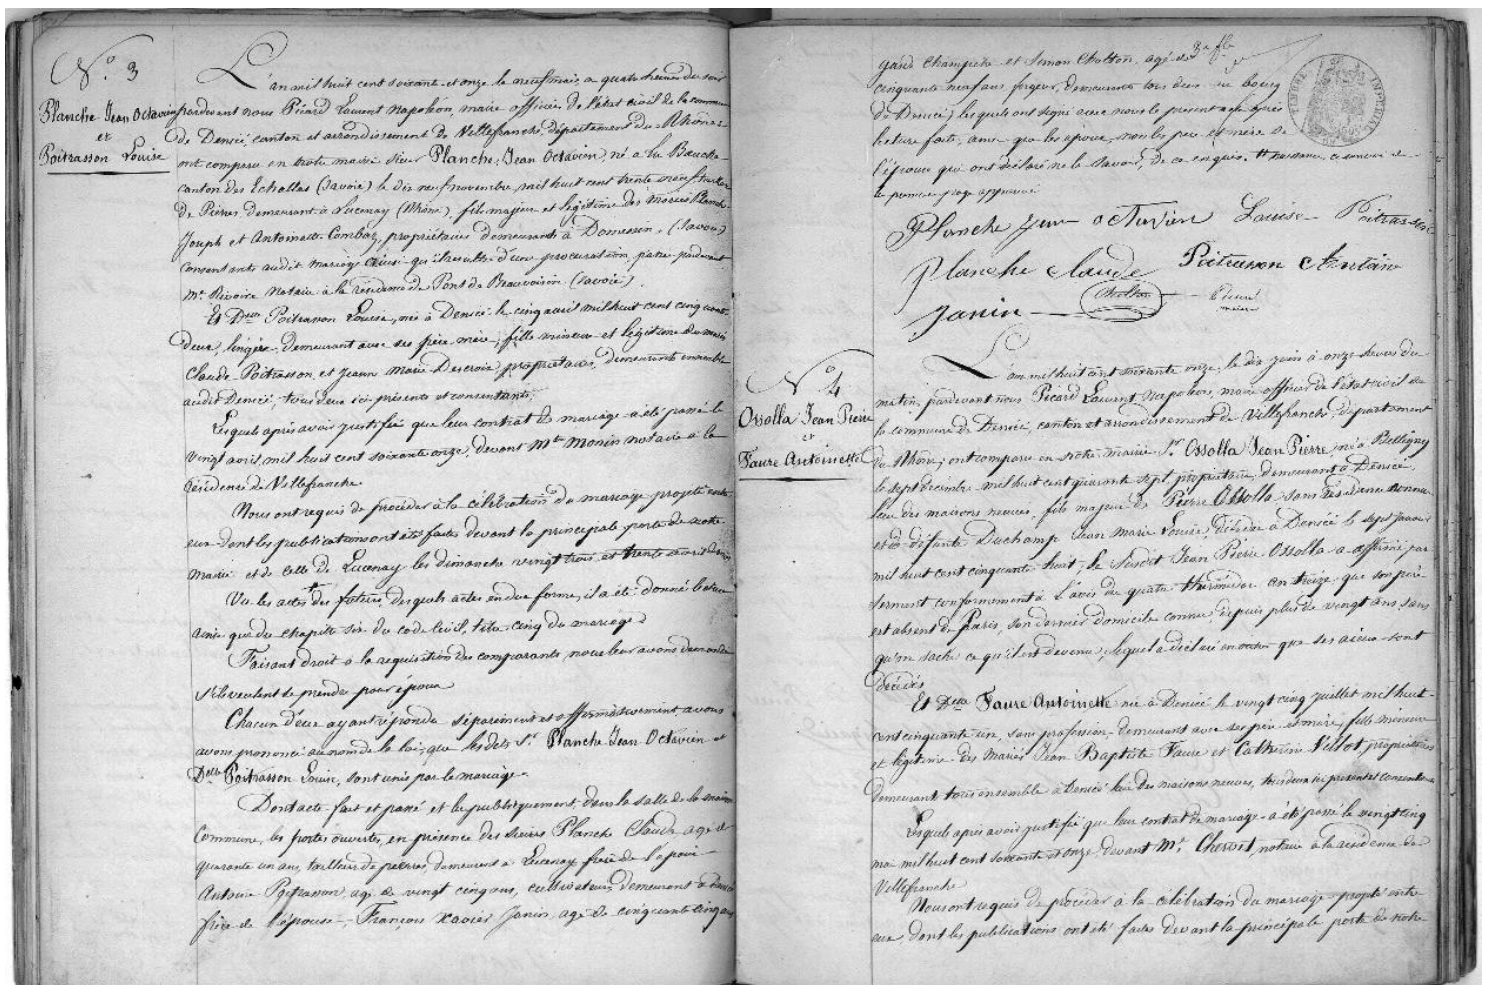 N° 3
Planche Jean Octavien
et
Poitrasson Louise
L'an mil huit cent soixante et onze le neuf mai, a quatre heures du soir
pardevant nous Picard Laurent Napoléon, maire officier de l'état civil de la commune
de Denicé, canton et arrondissement de Villefranche, département du Rhône :
ont comparu en notre mairie sieur Planche, Jean Octavien, né a la Bauche
canton des Echelles (Savoie) le dix neuf novembre, mil huit cent trente neuf,
de Pierres, demeurant à Lucenay (Rhône), fils majeur et légitime des mariés Planche
Joseph et Antoinette Combaz, propriétaires demeurants à Domessin, (Savoie)
consentants audit mariage ainsi qu'il résulte d'une procuration, passée pardevant
Me Rivoire notaire à la résidence de Pont de Beauvoisin (Savoie).
Et Delle Poitrasson Louise, née à Denicé le cinq avril mil huit cent cinquante
deux, lingère, demeurant avec ses père, mère, fille mineure et légitime des mariés
Claude Poitrasson et Jeanne Marie Descroix propriétaires, demeurants ensemble
audit Denicé, tous deux ici présents et consentants.
Lesquels après avoir justifié que leur contrat de mariage a été passé le
vingt avril, mil huit cent soixante onze, devant Me Monin notaire à la
résidence de Villefranche
Nous ont requis de procéder à la célébration du mariage projeté entre
eux dont les publications ont été faites devant la principale porte de notre
mairie et de celle de Lucenay les dimanche vingt trois et trente avril
Vu les actes des futurs, desquels actes en due forme, il a été donné lecture
ainsi que du chapitre six du code civil, titre cinq du mariage
Faisant droit à la requisition des comparants, nous leur avons demandé
s'ils veulent se prendre pour époux
Chacun d'eux ayant répondu séparément et affirmativement, avons
avons prononcé au nom de la loi, que les dits Sr Planche Jean Octavien et
Delle Poitrasson Louise, sont unis par le mariage
Dont acte fait et passé et lu publiquement, dans la salle de la maison
Commune, les portes ouvertes, en présence des sieurs Planche Claude agé de
quarante un ans, tailleur de pierres, demeurant a Lucenay frère de l'époux
Antoine Poitrasson, agé de vingt cinq ans, cultivateur, demeurant à Denicé
frère de l'épouse, François Xavier Janin, agé de cinquante cinq ans
garde Champetre et Simon Chollon, agé de
cinquante neuf ans forgeur, demeurants tous deux au bourg
de Denicé, lesquels ont signé avec nous le present acte après
lecture faite, ainsi que les époux, non les père et mère de
l'épouse qui ont déclaré ne le savoir, de ce enquis.
la première page approuvé
Planche Jean octavien Louise Poitrasson
Planche Claude Poitrasson Antoine
Janin Chollon Picard
maire
TIMBRE IMPERIAL
N° 4
Ossolla Jean Pierre
et
Faure Antoinette
L'an mil huit cent soixante onze, le dix juin à onze heures du
matin, pardevant nous Picard Laurent, Napoléon, maire officier de l'état civil de
la commune de Denicé, canton et arrondissement de Villefranche, département
du Rhône ; ont comparu en notre mairie Sr Ossolla Jean Pierre, né a Belligny
le sept décembre mil huit cent quarante sept, propriétaire, demeurant à Denicé,
lieu des maisons neuves, fils majeur de Pierre Ossolla sans résidence connue
et de défunte Duchamp Jean Marie Louise, décédée à Denicé le sept janvier
mil huit cent cinquante huit, le susdit Jean Pierre Ossolla a affirmé, par
serment conformement à l'avis du quatre thermidor an treize, que son père
est absent de Paris, son dernier domicile connu, depuis plus de vingt ans, sans
qu'on sache ce qu'il est devenu, lequel a déclaré en outre que ses aieux sont
décédés
Et Delle Faure Antoinette née à Denicé le vingt cinq juillet mil huit
cent cinquante un, sans profession, demeurant avec ses père et mère, fille mineure
et légitime des mariés Jean Baptiste Faure et Catherine Vellot, propriétaires
demeurant tous ensemble à Denicé lieu des maisons neuves, tous deux ici présents et consentants
Lesquels après avoir justifié que leur contrat de mariage a été passé le vingt cinq
mai mil huit cent soixante et onze, devant Me Chervet, notaire à la résidence de
Villefranche
Nous ont requis de procéder à la célébration du mariage projeté entre
eux, dont les publications ont été faites devant la principale porte de notre